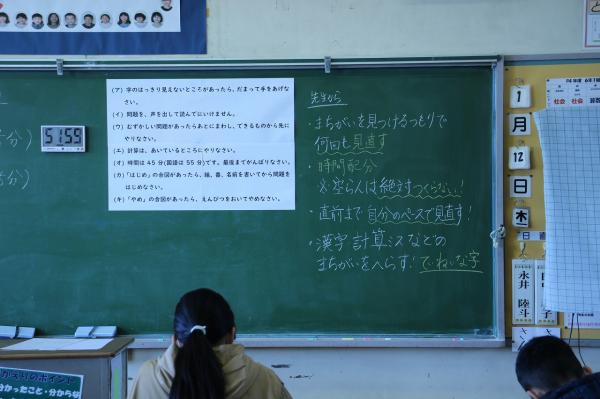 はじめに
51:55
分)
分)
(ア) 字のはっきり見えないところがあったら、だまって手をあげな
さい。
(イ) 問題を、声を出して読んでいけません。
(ウ) むずかしい問題があったらあとにまわし、できるものから先に
やりなさい。
(エ) 計算は、あいているところにやりなさい。
(オ) 時間は 45 分(国語は 55 分)です。最後までがんばりなさい。
(カ) 「はじめ」の合図があったら、組、番、名前を書いてから問題を
はじめなさい。
(キ) 「やめ」の合図があったら、えんぴつをおいてやめなさい。
先生から
・まちがいを見つけるつもりで
何回も見直す
・時間配分
※空らんは絶対つくらない!
・直前まで自分のペースで見直す!
・漢字 計算ミスなどの
まちがいをへらす! ていねいな字
1
月
12
日
木
日直
永井 陸斗
R4年度 6年1
社会 社会 算数
のポイント
分かったこと・分からな